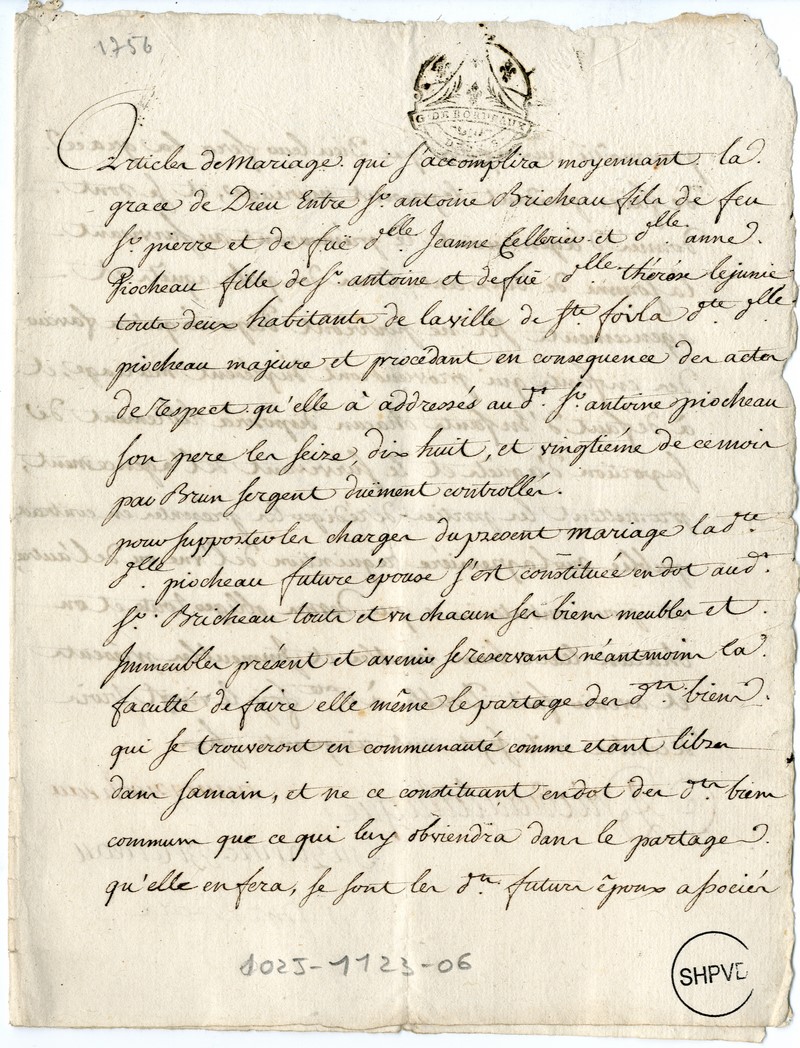 1756
G. DE BORDEAUX
Articles de Mariage qui s'accomplira moyennant la
grace de Dieu Entre Sr. antoine Bricheau fils de feu
Sr. pierre et de fuë dlle. Jeanne Cellerier et dlle. anne
Piocheau fille de Sr. antoine et de fuë dlle thérése lejunie
touts deux habitants de la ville de Ste foi, la dte dlle
piocheau majure et procédant en consequence des actes
de respect qu'elle à addressés au dt. Sr. antoine piocheau
son pere les seize, dix huit, et vingtiéme de ce mois
par Brun sergent duëment controllés.
pour supporter les charges du present mariage la dte
dlle piocheau future épouse s'est constituée en dot au dt.
Sr. Bricheau touts et un chacun ses biens meubles et
Immeubles présent et avenir se reservant néantmoins la
faculté de faire elle même le partage des dts. biens
qui se trouveront en communauté comme étant libres
dans sa main, et ne ce constituant en dot des dts. biens
communs que ce qui luy obviendra dans le partage
qu'elle en fera, se sont les dts. futurs époux associés
1025-1123-06
SHPVD